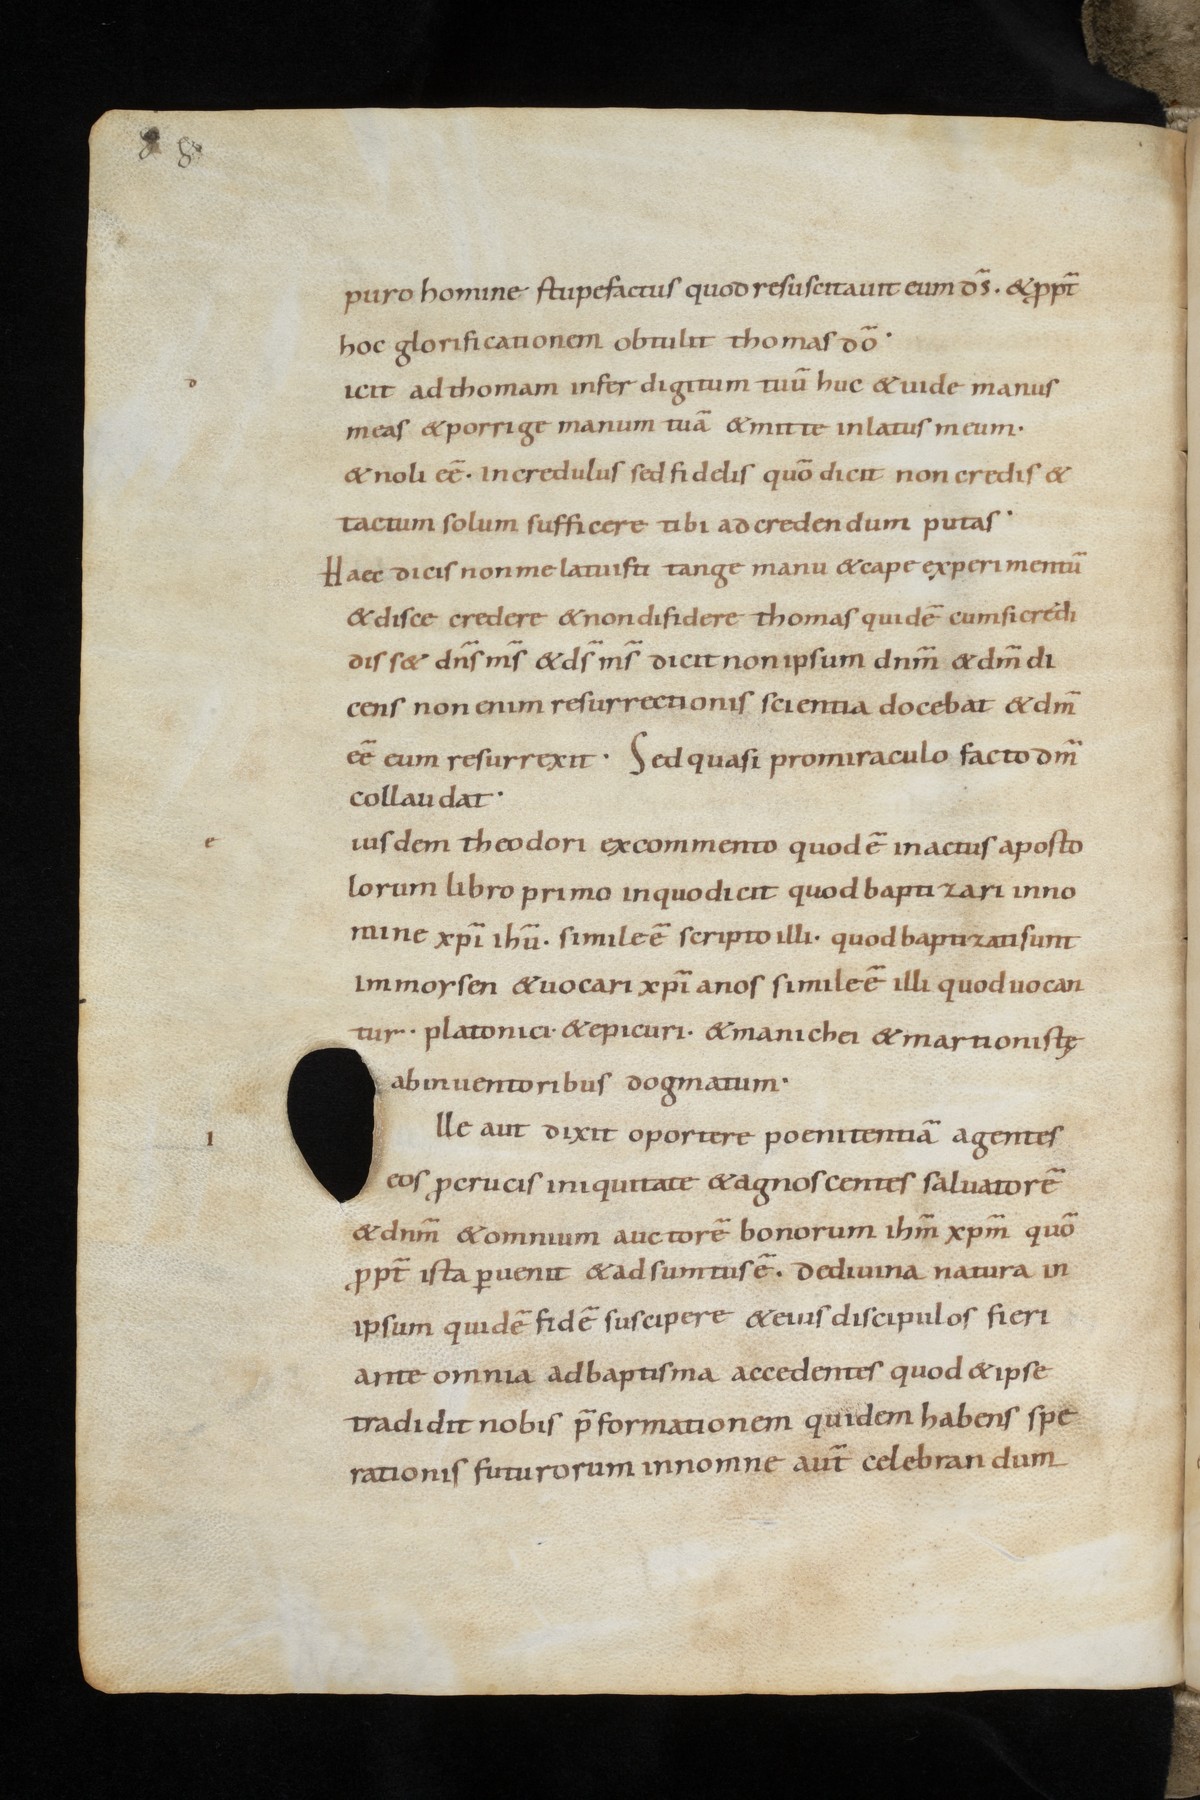 88
puro homine stupefactus quod resuscitauit eum d̄s. & ꝓpt̄
hoc glorificationem obtulit thomas dō·
d
icit ad thomam infer digitum tuū huc & uide manus
meas & porrige manum tuā & mitte in latus meum·
& noli eē· Incredulus sed fidelis quō dicit non credis &
tactum solum sufficere tibi ad credendum putas·
Haec dicis non me latuisti tange manu & cape experimentū
& disce credere & non difidere thomas quidē cum sicredi
dis s& dn̄s m̄s & d̄s m̄s dicit non ipsum dnm̄ & dm̄ di
cens non enim resurrectionis scientia docebat & dm̄
eē eum resurrexit· Sed quasi pro miraculo facto dm̄
collaudat·
e
iusdem theodori ex commento quod ē in actus aposto
lorum libro primo in quo dicit quod baptizari in no
mine xpī ihū· simile ē scripto illi· quod baptizati sunt
In moysen & uocari xpīanos simile ē illi quod uocan
tur· platonici· & epicuri· & manichei & martionistę
ab inuentoribus dogmatum·
I
lle aut dixit oportere poenitentiā agentes
eos ꝓ crucis iniquitate & agnoscentes saluatorē
& dnm̄ & omnium auctorē bonorum ihm̄ xpm̄ quō
ꝓpt̄ ista ꝑuenit & adsumtus ē· De diuina natura in
ipsum quidē fidē suscipere & eius discipulos fieri
ante omnia ad baptisma accedentes quod & ipse
tradidit nobis p̄formationem quidem habens spe
rationis futurorum in nomne aut̄ celebrandum